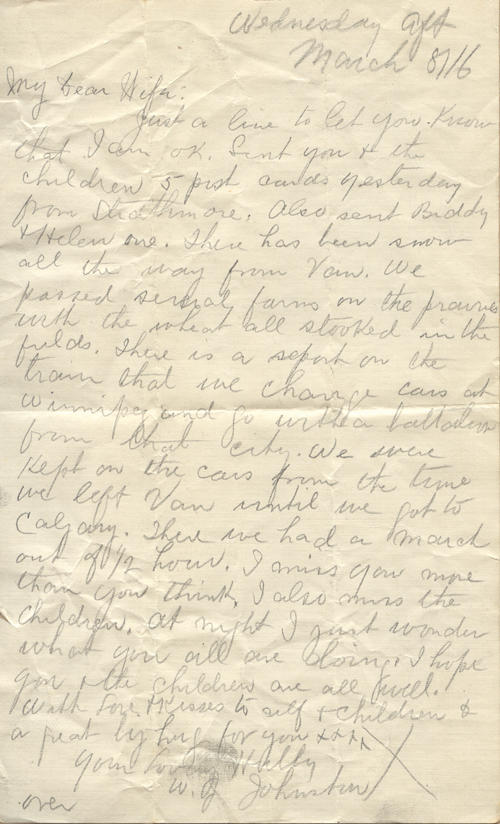 Wednesday aft
March 8/16
My Dear Wifie:
Just a line to let you know
that I am ok. Sent you & the
children 5 post cards yesterday
from Strathmore. Also sent Biddy
& Helen one. There has been snow
all the way from Van. We
passed several farms on the prairies
with the wheat all stooked in the
fields. There is a report on the
train that we change cars at
Winnipeg and go with a battalion
from that city. We were
Kept on the cars from the time
we left Van until we got to
Calgary. There we had a march
out of 1/2 hour. I miss you more
than you think. I also miss the
children. At night I just wonder
what you all are doing. I hope
you & the children are all well.
With Love & Kisses to self & children &
a great big hug for you xxxx
Your Loving Wally
W. J. Johnston
over